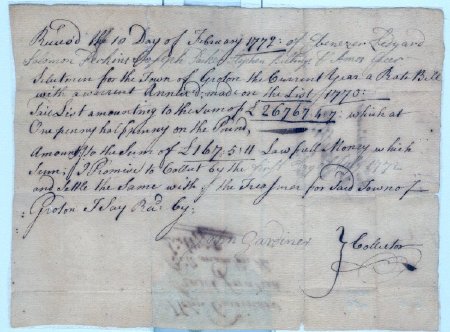 Receiv'd the 10 Day of February 1772: of Ebenezer Ledyard
Solomon Perkins Joseph Stephen Billings & Amos Geer
Selectmen for the Town of Groton the Current Year a Rate Bill
with a warrent Annex'd made on the List 1770:
Said List amounting to the Sum of £26767. which at
One penny half penny on the Pound,
Amounts to the Sum of £167:5:11 Law full Money which
Sum I Promise to Collect by the 1772
and Settle the Same with the Treasurer for Said Town of
Groton I Say Rd. by:
Gardiner } Collector